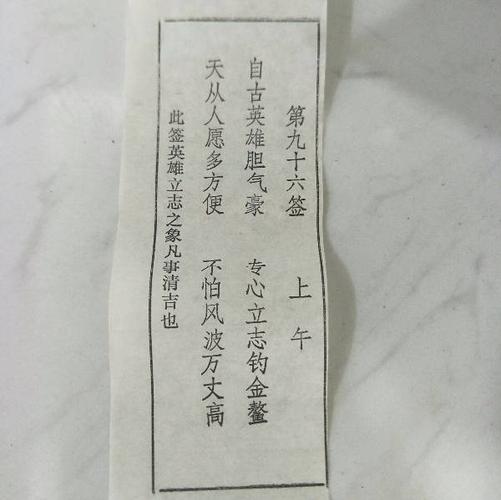 第九十六签 上午
自古英雄胆气豪 专心立志钓金鳌
天从人愿多方便 不怕风波万丈高
此签英雄立志之象凡事清吉也